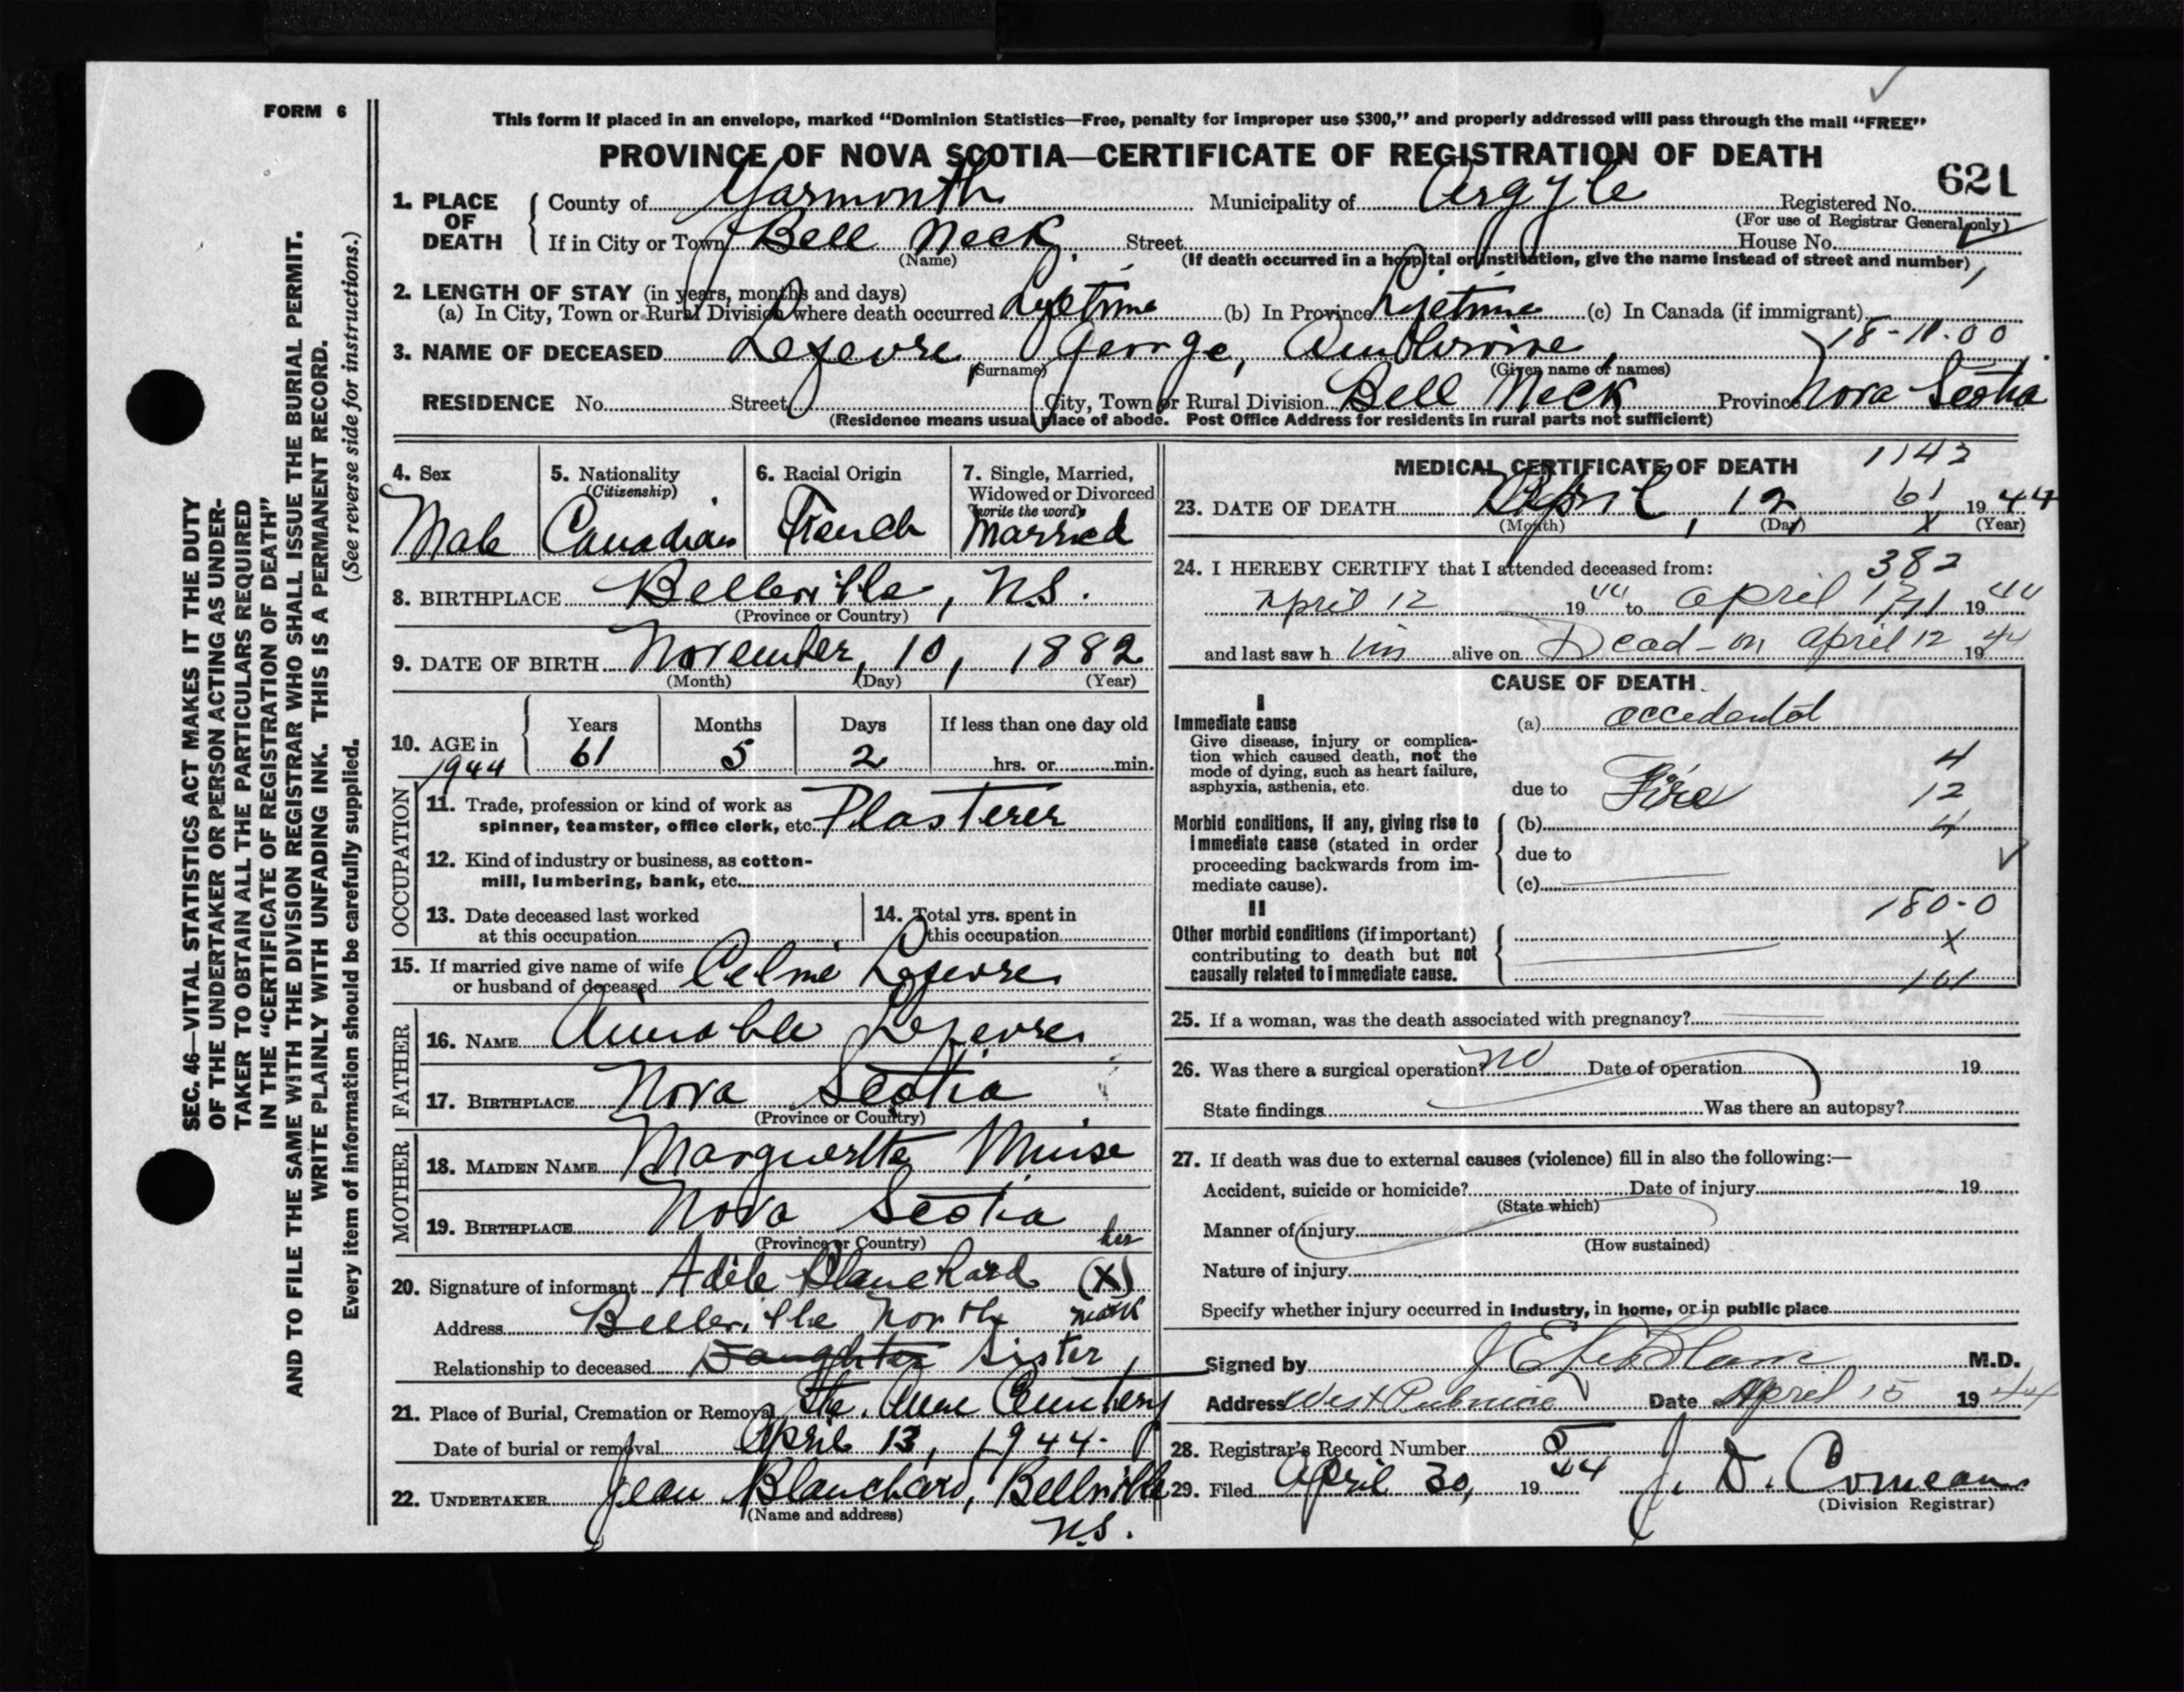 FORM 6
This form if placed in an envelope, marked “Dominion Statistics—Free, penalty for improper use $300,” and properly addressed will pass through the mail “FREE”
PROVINCE OF NOVA SCOTIA—CERTIFICATE OF REGISTRATION OF DEATH
621
1. PLACE OF DEATH
County of Yarmouth Municipality of Argyle Registered No.
(For use of Registrar General only)
If in City or Town Bell Neck, Street House No.
(Name)
(If death occurred in a hospital or institution, give the name instead of street and number)
2. LENGTH OF STAY (in years, months and days)
(a) In City, Town or Rural Division where death occurred Lifetime (b) In Province Lifetime (c) In Canada (if immigrant)
18-11-00
3. NAME OF DECEASED Lefevre, George, Ambroise,
(Surname) (Given name of names)
RESIDENCE No. Street City, Town or Rural Division Bell Neck Province Nova Scotia
(Residence means usual place of abode. Post Office Address for residents in rural parts not sufficient)
4. Sex
Male
5. Nationality
(Citizenship)
Canadian
6. Racial Origin
French
7. Single, Married,
Widowed or Divorced
(write the word)
Married
8. BIRTHPLACE Belleville, N.S.
(Province or Country)
9. DATE OF BIRTH November, 10, 1882
(Month) (Day) (Year)
10. AGE in 1944
Years Months Days If less than one day old
61 5 2 hrs. or min.
OCCUPATION
11. Trade, profession or kind of work as
spinner, teamster, office clerk, etc. Plasterer
12. Kind of industry or business, as cotton-
mill, lumbering, bank, etc.
13. Date deceased last worked
at this occupation
14. Total yrs. spent in
this occupation
15. If married give name of wife
or husband of deceased Celine Lefevre
FATHER
16. NAME Aimable Lefevre
17. BIRTHPLACE Nova Scotia
(Province or Country)
MOTHER
18. MAIDEN NAME Marguerite Muise
19. BIRTHPLACE Nova Scotia
(Province or Country)
20. Signature of informant Adèle Blanchard her (X) mark
Address Belleville North
Relationship to deceased Daughter Sister,
21. Place of Burial, Cremation or Removal Ste. Anne Cemetery
Date of burial or removal April 13, 1944.
22. UNDERTAKER Jean Blanchard, Belleville
(Name and address)
N.S.
MEDICAL CERTIFICATE OF DEATH 1143
23. DATE OF DEATH April, 12 61 1944
(Month) (Day) X (Year)
24. I HEREBY CERTIFY that I attended deceased from:
382
April 12 1944 to April 1944
and last saw him alive on Dead - on April 12 1944
CAUSE OF DEATH
I
Immediate cause
Give disease, injury or complica-
tion which caused death, not the
mode of dying, such as heart failure,
asphyxia, asthenia, etc.
(a) accedental
4
due to Fire
12
Morbid conditions, if any, giving rise to
immediate cause (stated in order
proceeding backwards from im-
mediate cause).
(b)
4
due to
(c)
180-0
II
Other morbid conditions (if important)
contributing to death but not
causally related to immediate cause.
X
25. If a woman, was the death associated with pregnancy?
26. Was there a surgical operation? no Date of operation 19
State findings Was there an autopsy?
27. If death was due to external causes (violence) fill in also the following:—
Accident, suicide or homicide? Date of injury 19
(State which)
Manner of injury
(How sustained)
Nature of injury
Specify whether injury occurred in industry, in home, or in public place
Signed by J E LeBlanc M.D.
Address West Pubnico Date April 15 1944
28. Registrar's Record Number 5
29. Filed April 30, 1944 J. D. Comeau
(Division Registrar)
SEC. 46—VITAL STATISTICS ACT MAKES IT THE DUTY
OF THE UNDERTAKER OR PERSON ACTING AS UNDER-
TAKER TO OBTAIN ALL THE PARTICULARS REQUIRED
IN THE “CERTIFICATE OF REGISTRATION OF DEATH”
AND TO FILE THE SAME WITH THE DIVISION REGISTRAR WHO SHALL ISSUE THE BURIAL PERMIT.
WRITE PLAINLY WITH UNFADING INK. THIS IS A PERMANENT RECORD.
Every item of information should be carefully supplied. (See reverse side for instructions.)